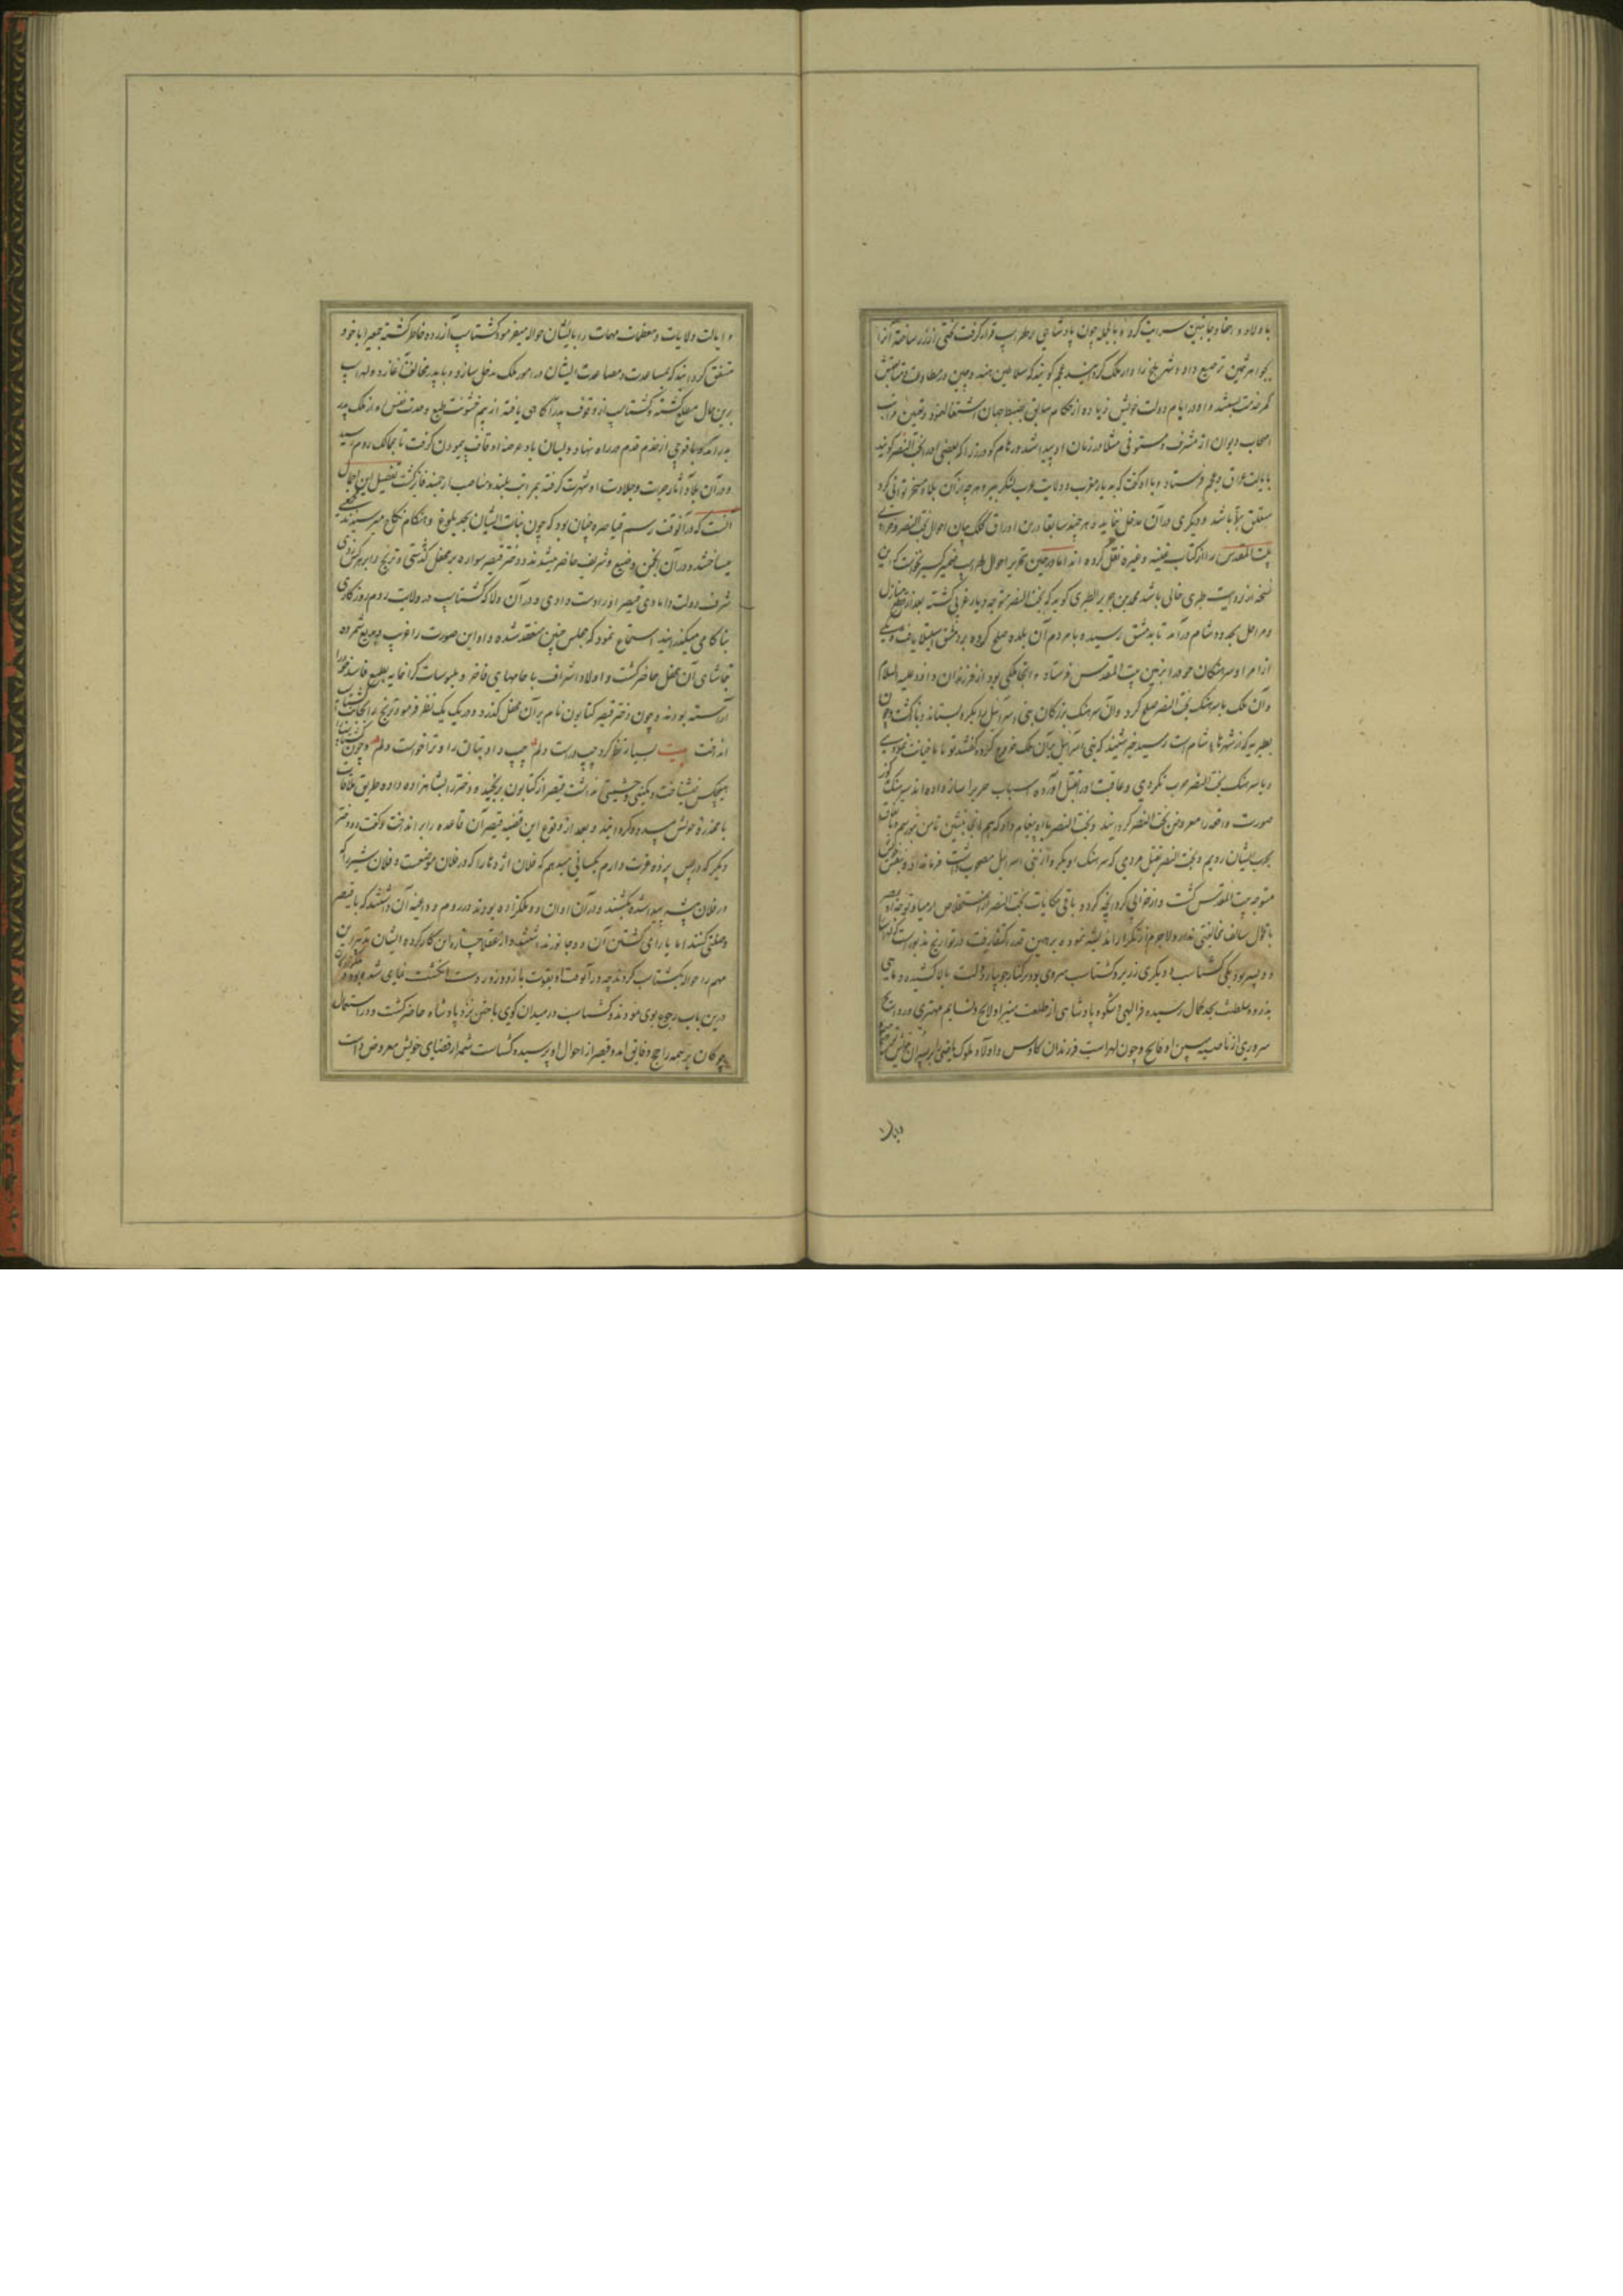 باولاد و احفاد جانبین سرایت کرد و بالجمله چون پادشاهی بر لهراسب قرار گرفت تختی از زر ساخته آنرا
بجواهر ثمین ترصیع داد و شهر بلخ را دار ملک گردانید عجم گویند که سلاطین هند و چین در مطاوعت و متابعتش
کمر خدمت بستند و او در ایام دولت خویش زیاده از حکام سابق بضبط جهان اشتغال نمود و تعیین مراتب
اصحاب دیوان از مشرف و مستوفی مثلا در زمان او پیدا شد و رهام گودرز را که بعضی او را بخت النصر گویند
بایالت عراق و عجم فرستاد و با او گفت که به دیار مغرب و ولایت عرب لشکر ببر و هرچه از آن بلاد مسخر توانی کرد
متعلق بتو باشد و دیگری در آن مدخل ننماید و هرچند سابقا درین اوراق کلک بیان احوال بخت النصر و خرابی
بیت المقدس را از کتاب قصه و غیره نقل کرده اند اما در حین تحریر احوال لهراسب ضمیر کسیر نخواست که این
نسخه از روایت طبری خالی باشد محمد بن جریر الطبری گوید که بخت النصر متوجه دیار غربی گشته بعد از قطع منازل
و مراحل بحدود شام درآمد تا بدمشق رسیده با مردم آن بلده صلح کرده بر دمشق استیلا یافت و یکی
از امرا و سرهنگان خود را بزمین بیت المقدس فرستاد و آنجا ملکی بود از فرزندان داود علیه السلام
و آن ملک با سرهنگ بخت النصر صلح کرد و آن سرهنگ بزرگان بنی اسرائیل را بگرو بستاند و بازگشت و چون
بطبریه که از شهرهای شام است رسید خبر شنید که بنی اسرائیل بر آن ملک خروج کرده گفتند تو با ما خیانت نمودی
و با سرهنگ بخت النصر حرب نکردی و عاقبت او را بقتل آورده اسباب حرب را ساز داده اند سرهنگ
صورت واقعه را معروض بخت النصر گردانید و بخت النصر باو پیغام داد که هم آنجا بنشین تا من نیز برسم و باتفاق
بحرب ایشان رویم و بخت النصر بقتل مردمی که سرهنگ بگرو از بنی اسرائیل مصحوب داشت فرمان داد و بنفس خویش
متوجه بیت المقدس گشت و از خرابی کرد آنچه کرد و باقی حکایات بخت النصر از استخلاص ارمیا و توجه او بمصر
با قول سالف مخالفتی ندارد لاجرم از تکرار اندیشه نموده بر همین قدر اکتفا رفت در تواریخ مذکور است که لهراسب را
دو پسر بود یکی گشتاسب و دیگری زریر و گشتاسب سروی بود بر کنار جویبار دولت بالا کشیده و ماهی
بذروه سلطنت بحد کمال رسیده فر الهی و شکوه پادشاهی از طلعت منیر او لایح و نسایم مهتری و روایح
سروری از ناصیه مبین او فایح و چون لهراسب فرزندان کاوس و اولاد ملوک ماضی را بر پسران خویش
و ایالت
و ایالت ولایات و معظمات مهمات را بایشان حواله میفرمود گشتاسب آزرده خاطر گشته جمعی را با خود
متفق گردانید که بمساعدت و مصاعدت ایشان در امور ملک مدخل سازد و با پدر مخالفت آغازد و لهراسب
برین حال مطلع گشته و گشتاسب از وقوف پدر آگاهی یافته از بیم خشونت طبع و حدت نفس او از ملک پدر
بدر آمد و با فوجی از خدم قدم در راه نهاد و بسان باد عرصه آفاق پیمودن گرفت تا بممالک روم رسید
و در آن بلاد آثار جرات و جلادت او شهرت گرفته بمراتب بلند و مناصب ارجمند فایز گشت تفصیل این اجمال
آنست که در آن وقت رسم قیاصره چنان بود که چون بنات ایشان بحد بلوغ و هنگام نکاح میرسیدند مجمعی
میساختند و در آن انجمن وضیع و شریف حاضر میشدند و دختر قیصر سواره بر محفل گذشتی و ترنج را بر هرکس زدی
شرف دولت دامادی قیصر او را دست دادی و در آن ولا که گشتاسب در ولایت روم روزگاری
بناکامی میگذرانید استماع نمود که مجلس چنین منعقد شده و او این صورت را غریب و بدیع شمرده
بتماشای آن محفل حاضر گشت و اولاد اشراف با جامهای فاخر و ملبوسات گرانمایه بطمع فاسد خود را
آراسته بودند و چون دختر قیصر کتایون نام بر آن محفل گذر کرد و در یک یک نظر فرمود ترنج را بجانب گشتاسب
انداخت بیت بسیار نظر کرد چپ و راست دلم چپ داد بتان را و ترا خواست دلم و چون گشتاسب را
هیچکس نمیشناخت و مکنتی و حشمتی نداشت قیصر از کتایون برنجید و دختر را بشاهزاده داده طریق ملاقات
با مخدره خویش مسدود گردانید و بعد از وقوع این قضیه قیصر آن قاعده را برانداخت و گفت دو دختر
دیگر که در پس پرده عزت دارم بکسانی میدهم که فلان اژدها را که در فلان موضعست و فلان شیر را که
در فلان بیشه پیدا شده بکشند و در آن اوان دو ملکزاده بودند در روم و داعیه آن داشتند که با قیصر
وصلتی کنند اما یارای کشتن آن دو جانور نداشتند و از عقلا چاره این کار کرده ایشان تدبیر این
مهم را حواله بگشتاسب کردند چه در آن وقت او بقوت بازو و زور دست انگشت نمای شده بود و ملکزادگان
درین باب رجوع بوی نمودند و گشتاسب در میدان گوی باختن نزد پادشاه حاضر گشت و در استعمال
چوگان بر همه راجح و فایق آمد و قیصر از احوال او پرسیده گشتاسب شمه از قضایای خویش معروض داشت